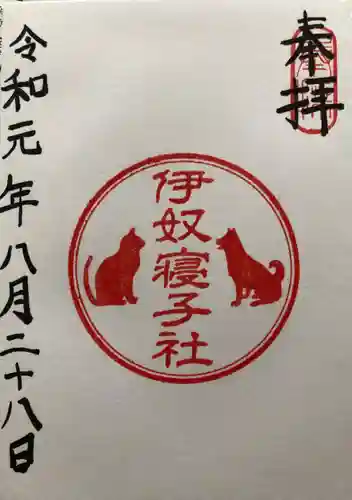 奉拝
伊奴寝子社
令和元年八月二十八日